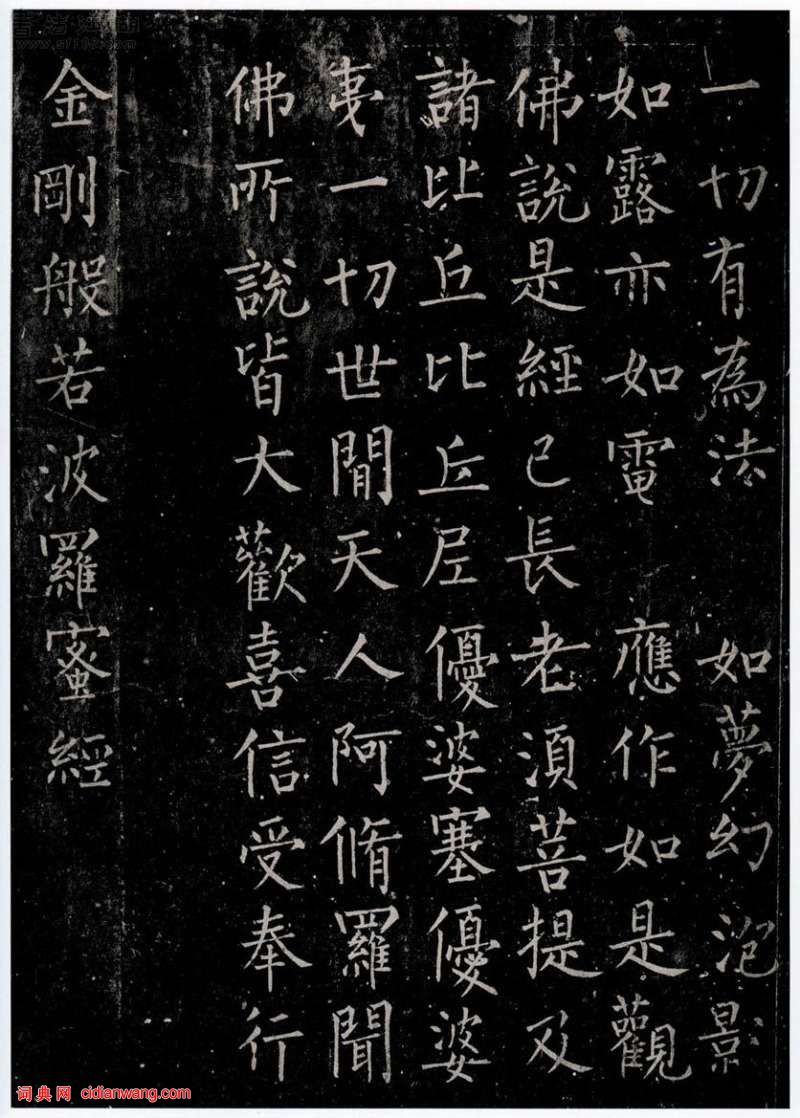 一切有為法 如夢幻泡影
如露亦如電 應作如是觀
佛說是經已長老湏菩提及
諸比丘比丘尼優婆塞優婆
夷一切世間天人阿脩羅聞
佛所說皆大歡喜信受奉行
金剛般若波羅蜜經
词典网 cidianwang.com